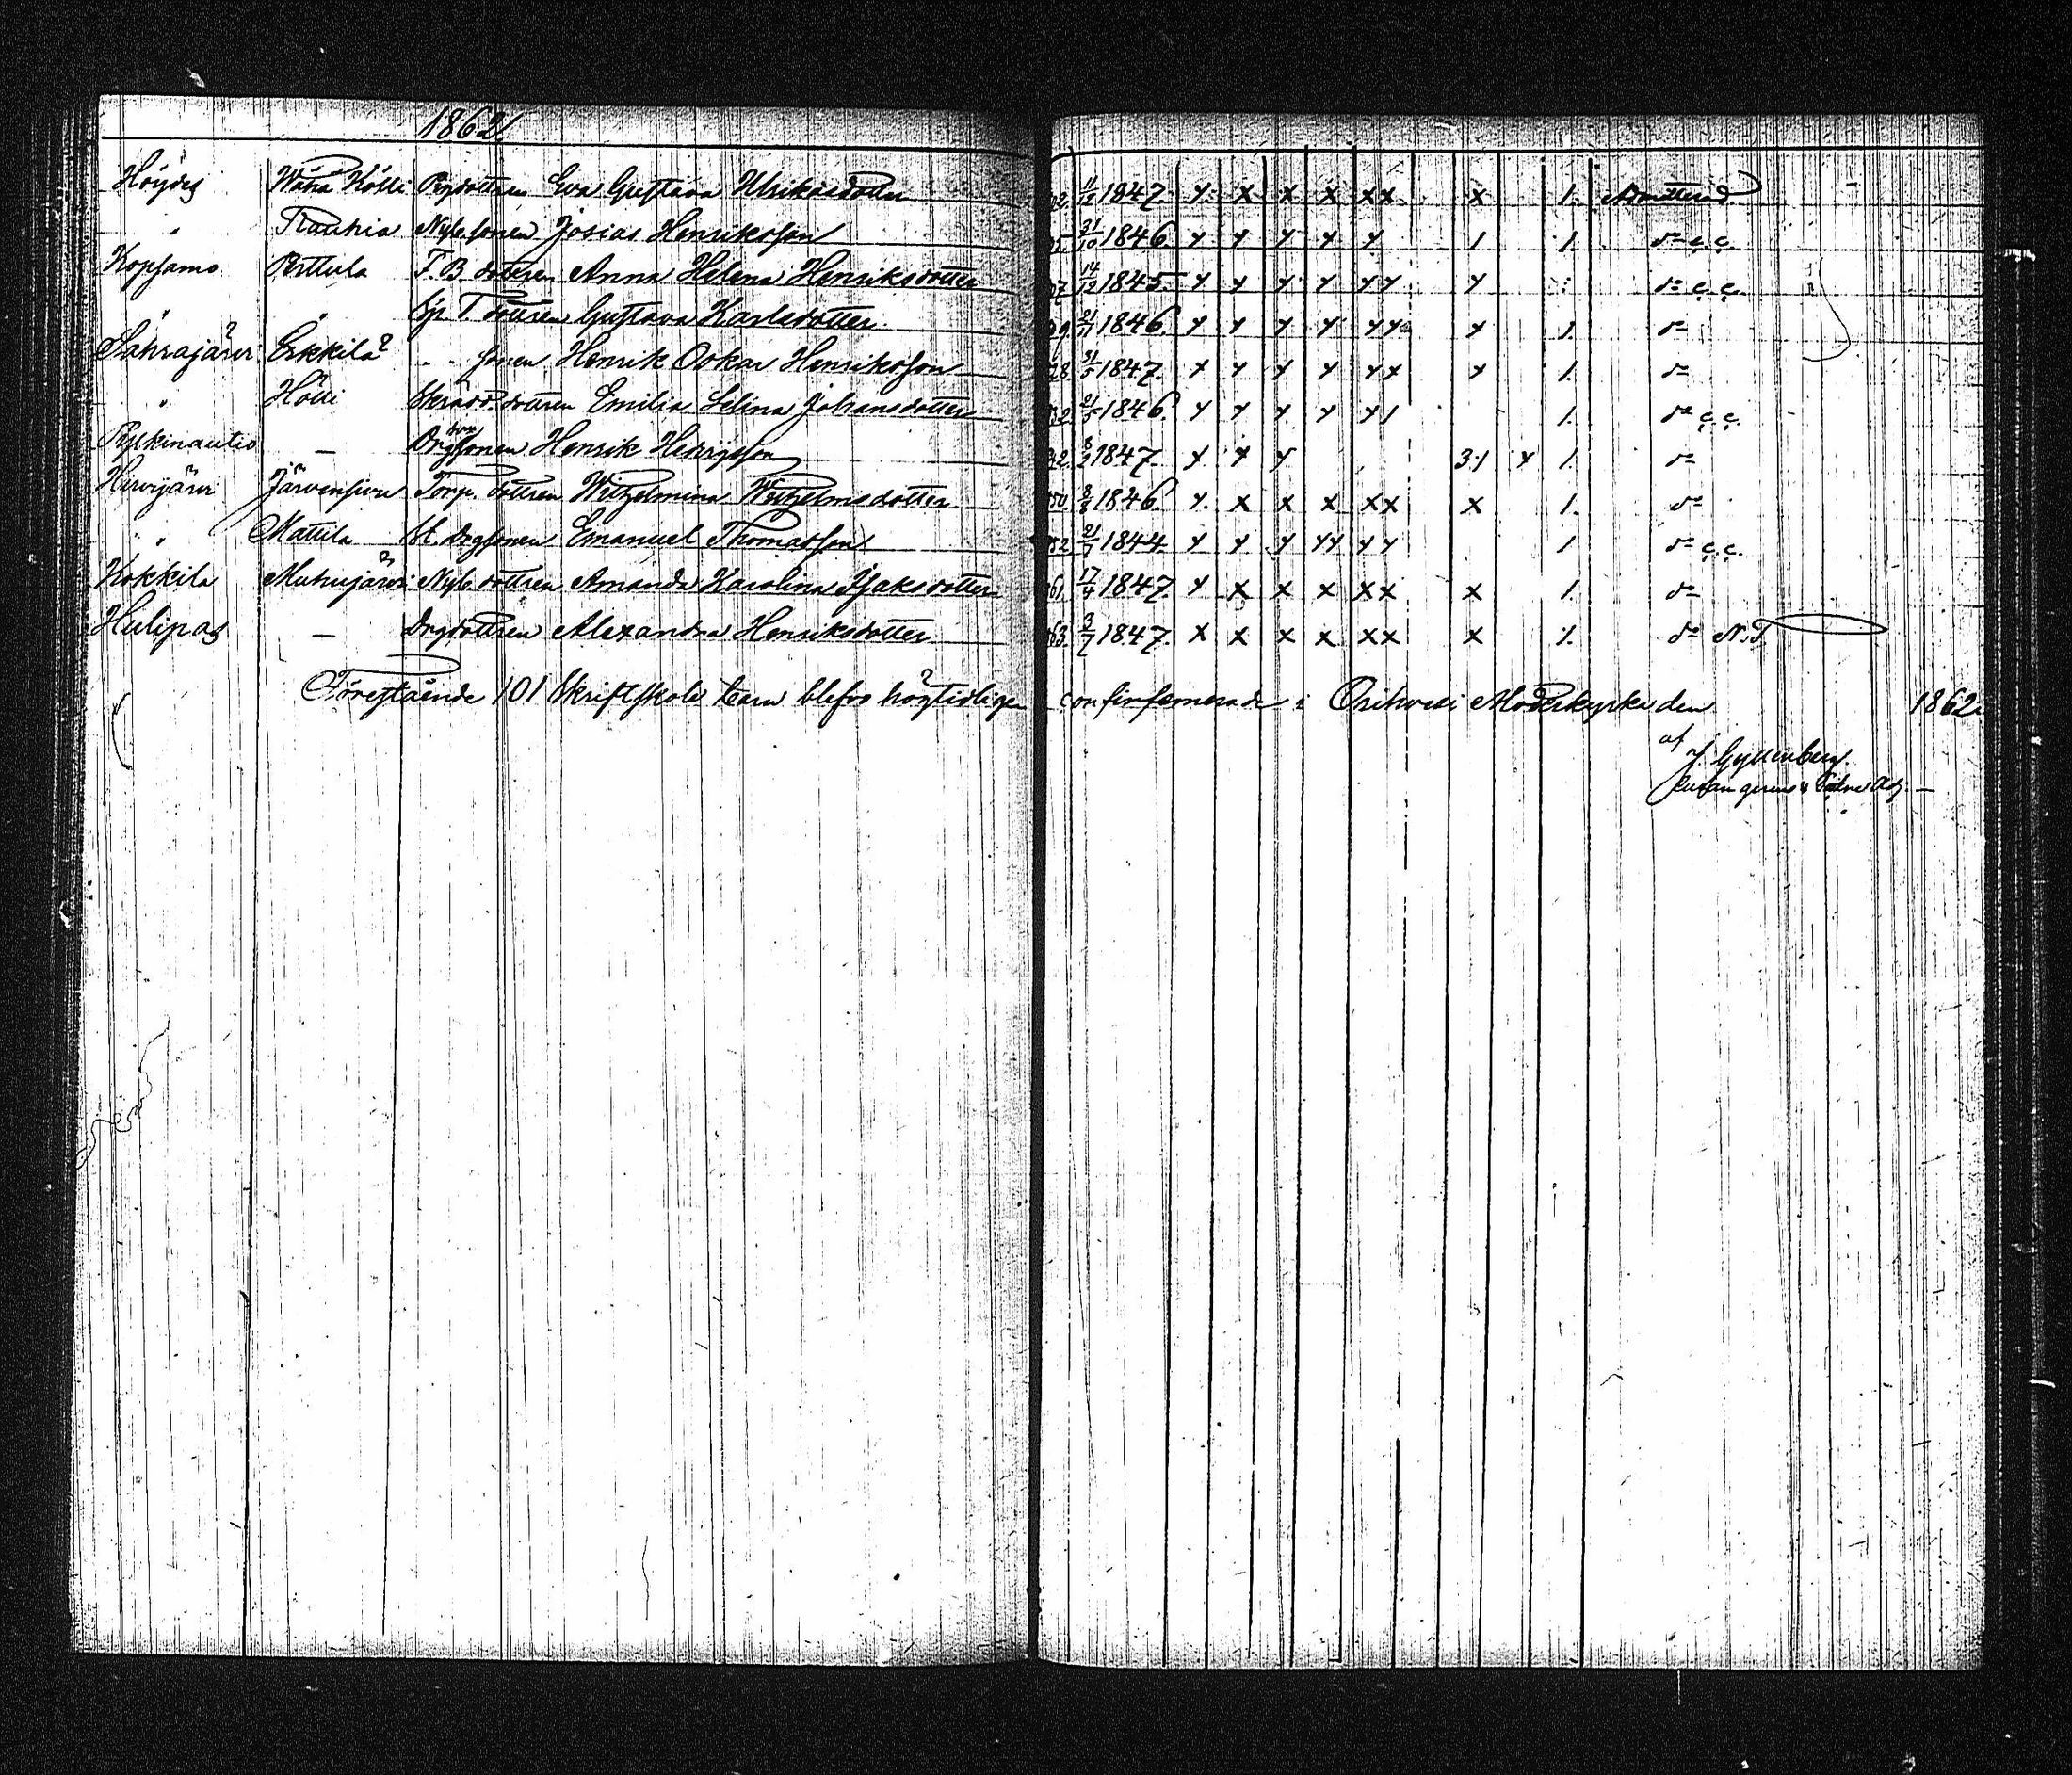 1862
Höydes Wäha Kölli Pigdottren Eva Gustava Ulrikasdotter 11/12 1847. x. x x x xx x 1. Admitterad
" Rauhia Nyb. sonen Josias Henriksson 31/10 1846. x x x x x 1 1. do c.c.
Kopsamo Perttula T. B. dottren Anna Helena Henriksdotter 14/12 1845. x x x x xx x do c.c.
" " Sjr T. dottren Gustava Karlsdotter 21/11 1846. x x x x xx x 1. do
Sahrajärvi Erkkilä " sonen Henrik Oskar Henriksson 31/5 1847. x x x x xx x 1. do
" Hölli Skrädd. dottren Emilia Selina Johansdotter 21/5 1846. x x x x x1 1. do c.c.
Pylkinautio — Drgsonen Henrik Henriksson 8/2 1847. x x x 31 x 1. do
Hirvijärvi Järvensivu Torp. dottren Wilhelmina Wilhelmsdotter 8/8 1846. x. x x x xx x 1. do
" Mattila bl. Drgsonen Emanuel Thomasson 21/7 1844 x x x xx xx 1 do c.c.
Kokkila Muhujärvi Nyb. dottren Amanda Karolina Isaksdotter 61. 17/4 1847. x x x x xx x 1. do
Hulipas — Drgdottren Alexandra Henriksdotter 63. 3/7 1847. x x x x xx x 1. do N.T.
Förestående 101 Skriftskole barn blefvo högtidligen confirmerade i Orihvesi Moderkyrka den 1862.
af
Gyllenberg.